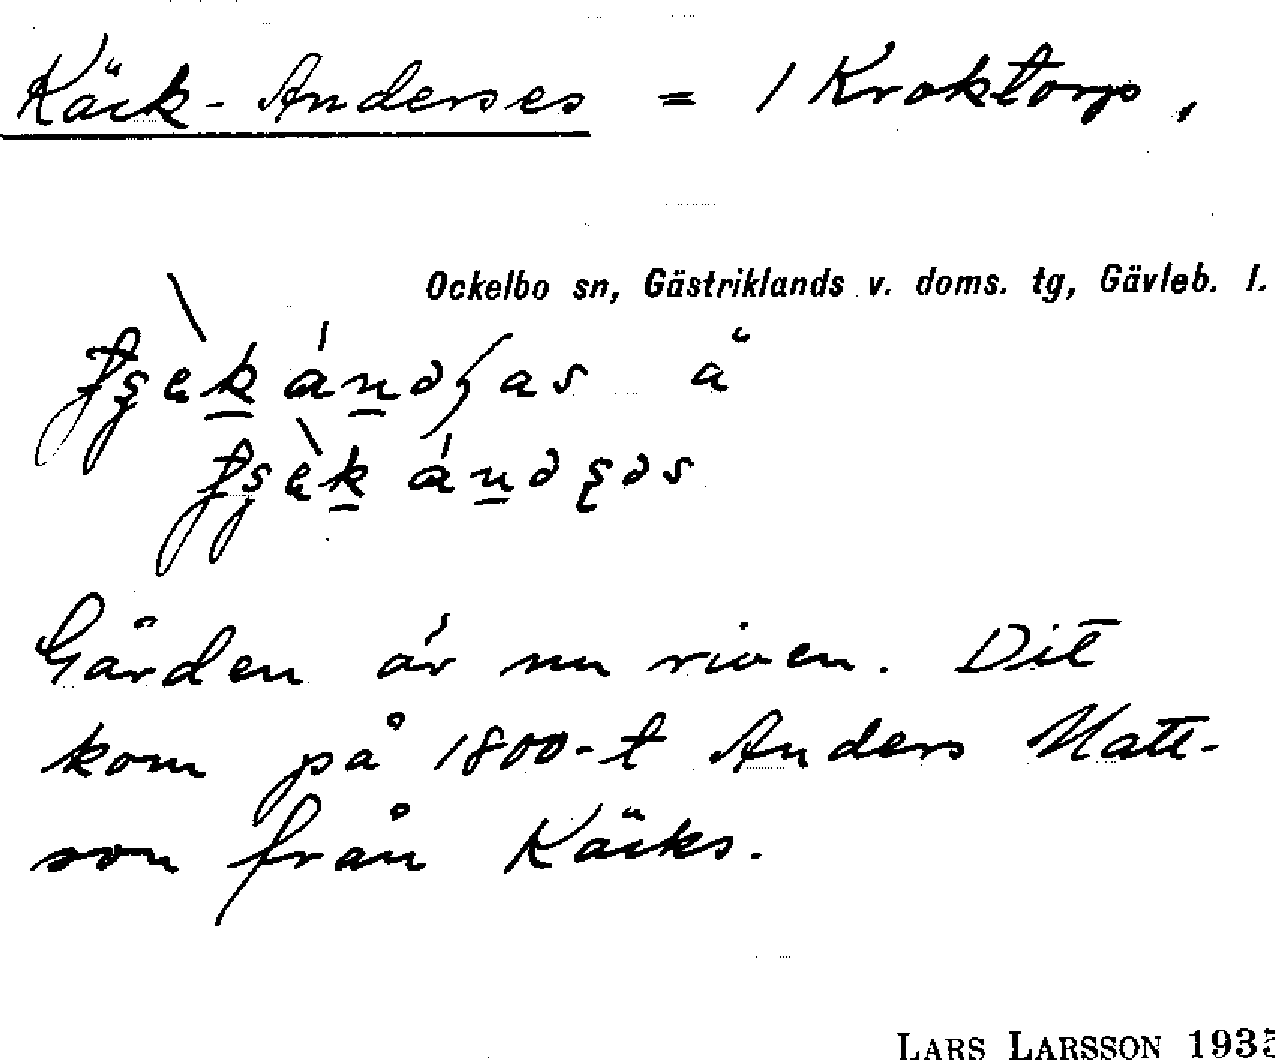 Käck-Anderses = 1 Kroktorp,
Ockelbo sn, Gästriklands v. doms. tg, Gävleb. l.
ä
Gården är nu riven. Dit
kom på 1800-t Anders Matt-
son från Käcks.
LARS LARSSON 1935